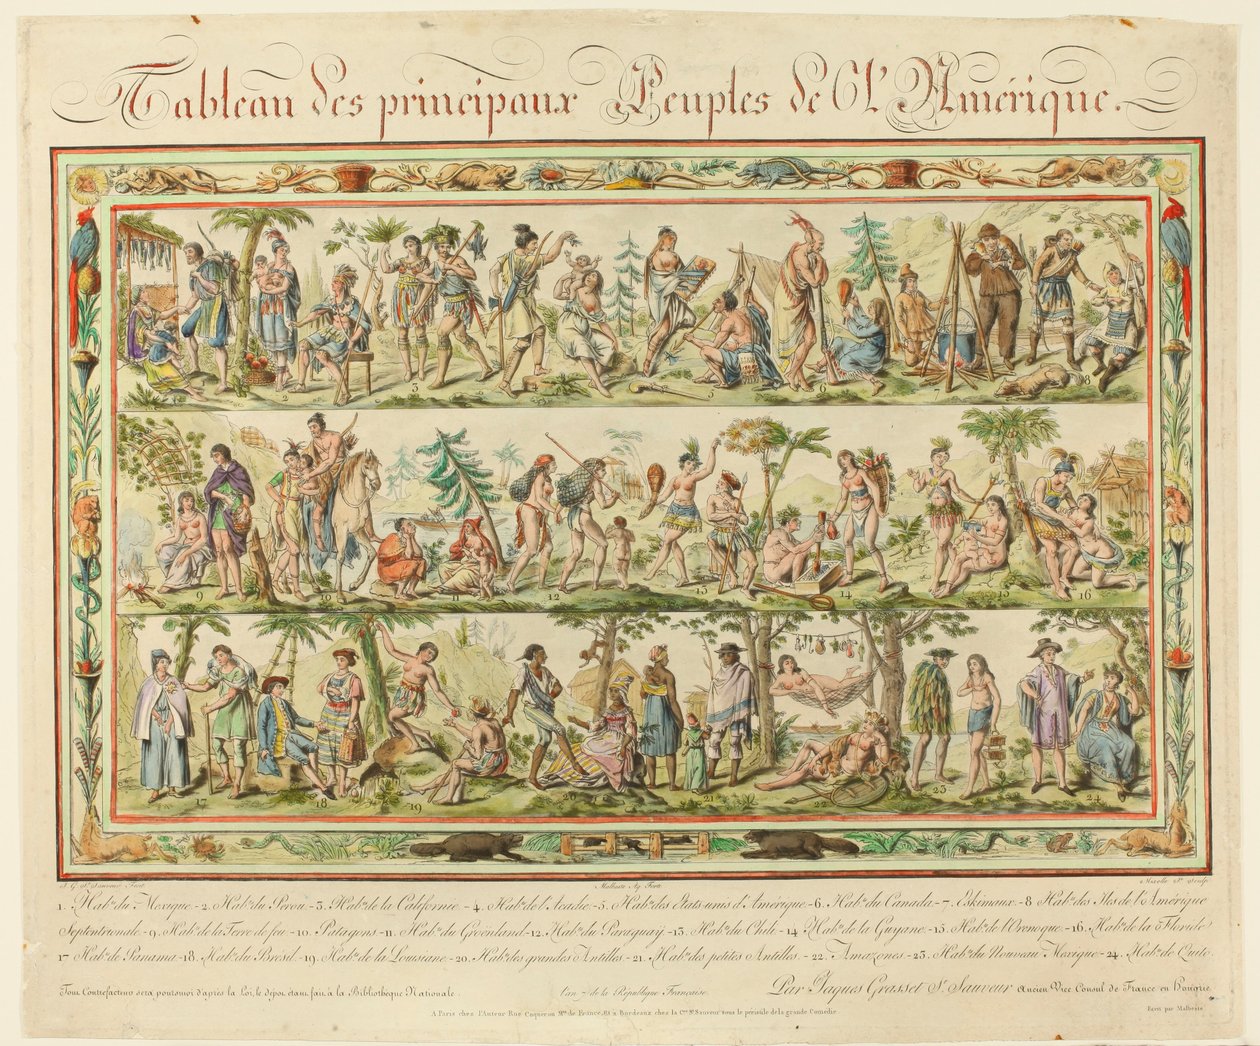 Tableau des principaux Peuples de l'Amérique.
1
2
3
4
5
6
7
8
9
10
11
12
13
14
15
16
17
18
19
20
21
22
23
24
J. G. St. Sauveur Fecit Malbeste Aq. Forti Mixelle Je. Sculp.
1. Habns. du Mexique - 2. Habns. du Perou - 3. Habns. de la Californie - 4. Habns. de l'Acadie - 5. Habns. des Etats-unis d'Amérique - 6. Habns. du Canada - 7. Eskimaux - 8 Habns. des Iles de l'Amérique
Septentrionale - 9. Habns. de la Terre de feu - 10. Patagons - 11. Habns. du Groënland - 12. Habns. du Paraguaÿ - 13. Habns. du Chili - 14 Habns. de la Guyane - 15. Habns. de l'Orenoque - 16. Habns. de la Floride
17 Habns. de Panama - 18. Habns. du Bresil - 19. Habns. de la Louisiane - 20. Habns. des grandes Antilles - 21. Habns. des petites Antilles - 22. Amazones - 23. Habns. du Nouveau Mexique - 24. Habns. de Quito.
Tout Contrefacteur sera poursuivi d'après la loi, le dépot étant fait à la Bibliothèque Nationale. l'an 7 de la République Française. Par Jaques Grasset St. Sauveur Ancien Vice Consul de France en hongrie
A Paris chez l'Auteur Rue Coquéron Mon. de France, et a Bordeaux chez la Cne. St. Sauveur sous le péristile de la grande Comédie. Ecrit par Malbeste